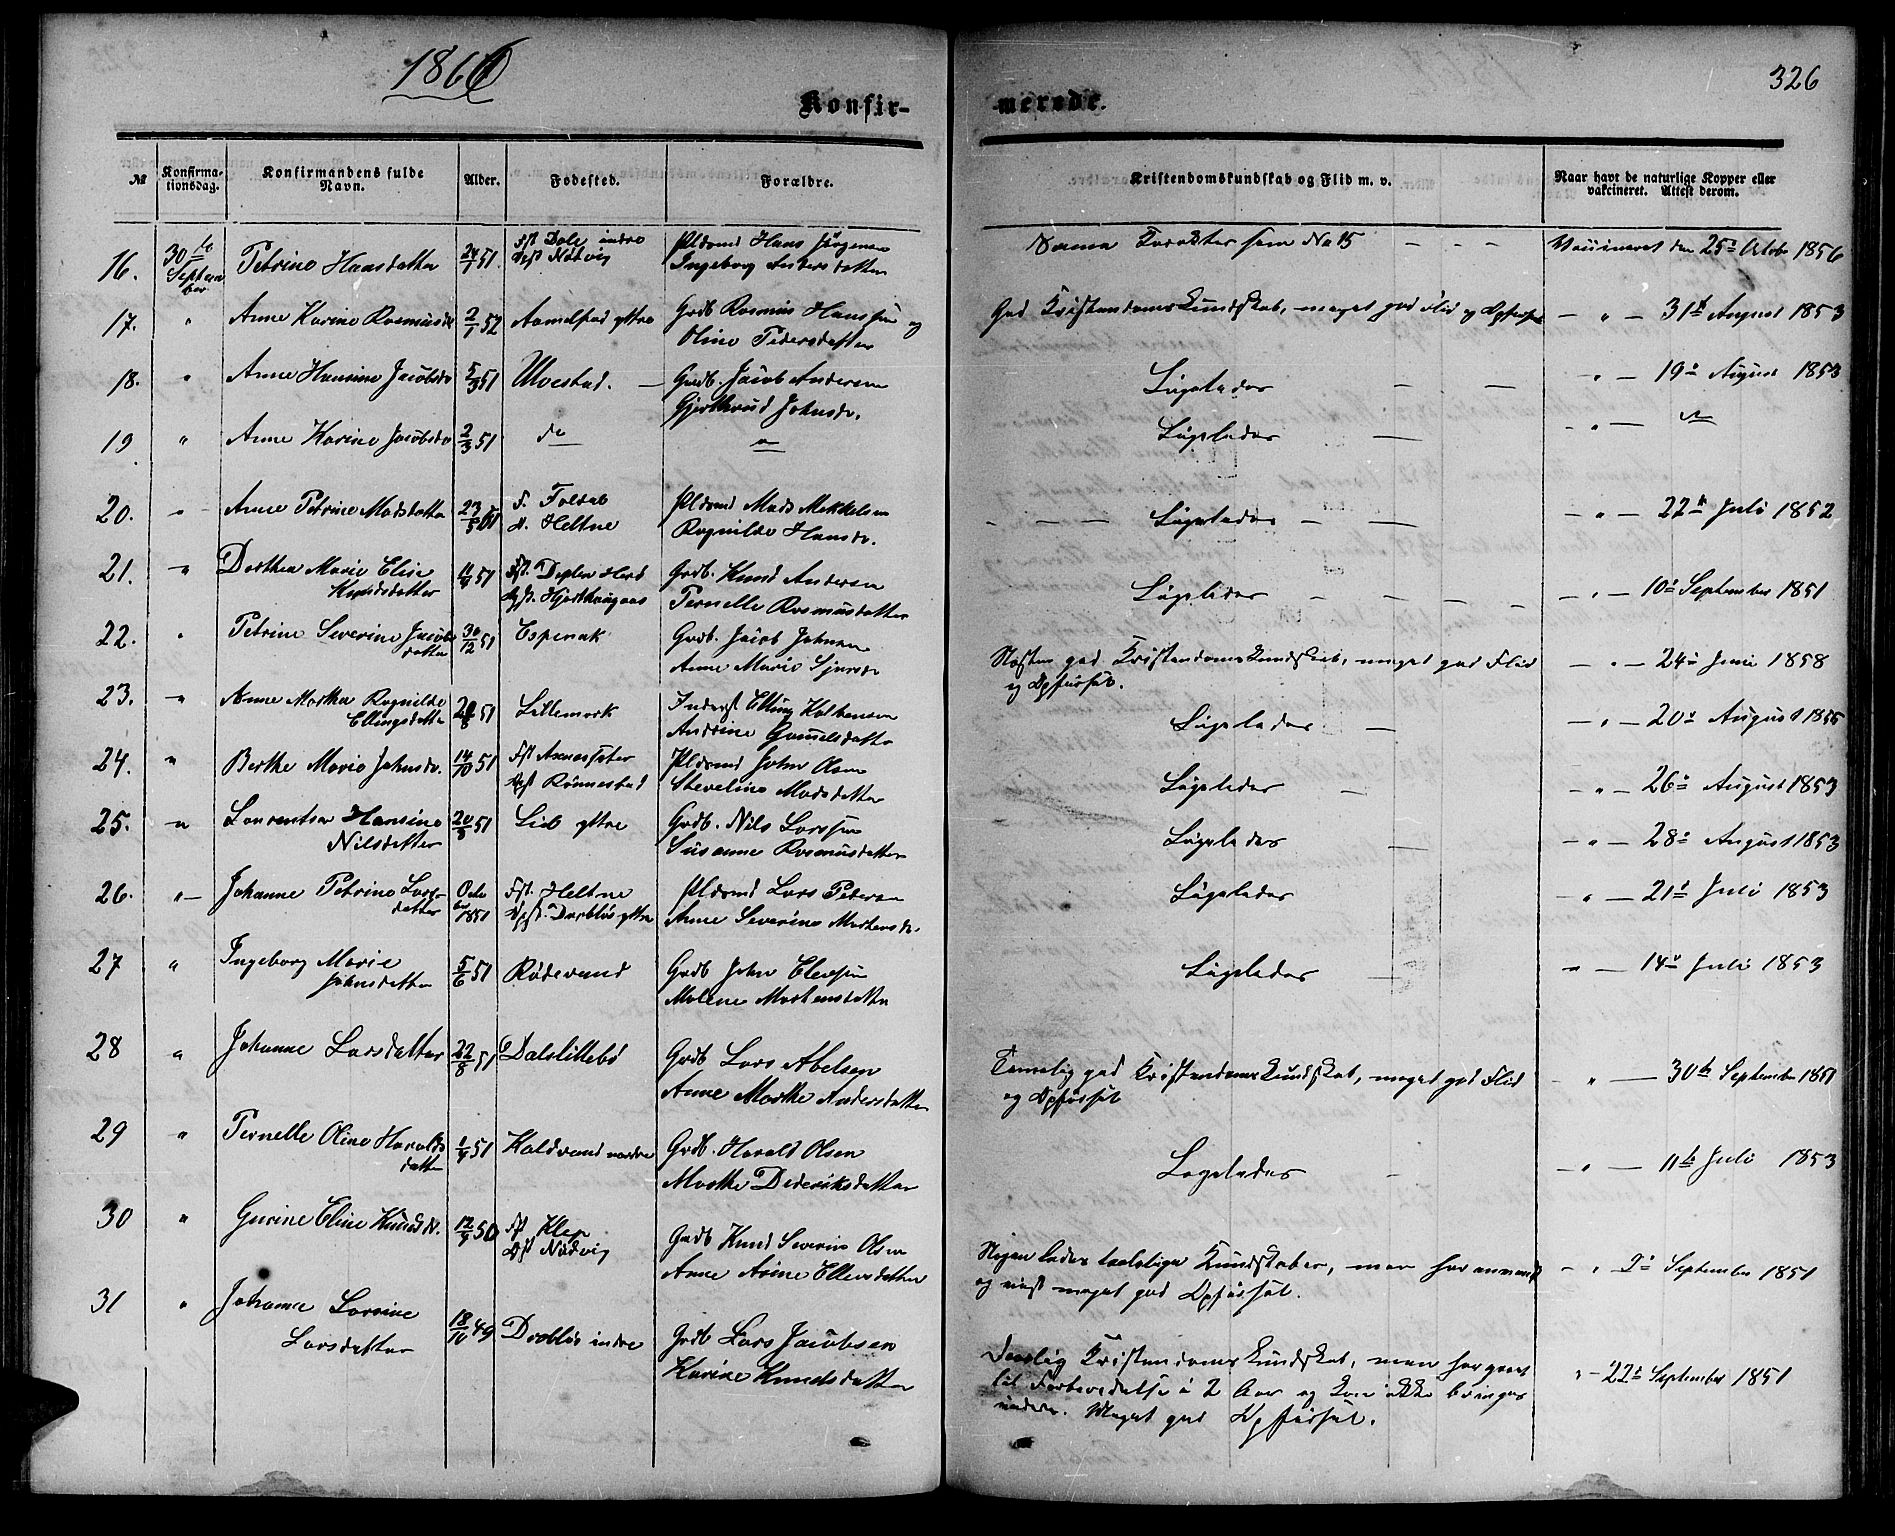 1866
326
Konfir-
merede.
№
Konfirma-
tionsdag.
Konfirmandens fulde
Navn.
Alder.
Fodested.
Forældre.
Kristendomskundskab og Flid m. v.
Naar havt de naturlige Kopper eller
vakcineret. Attest derom.
16. 30te September Petrine Hansdatter 51 Fst Dale indre Opst Nødvig Pldsmd Hans Jörgensen Ingeborg Andersdatter Samme Karakter som No 15 Vaccineret den 25de Octbr 1856
17. " Anne Karine Rasmusdr 2/1 52 Aamelfod yttre Grdb Rasmus Hanssen og Oline Pedersdatter God Kristendomskundskab, meget god Flid og Opførsel — " — 31te August 1853
18. " Anne Hansine Jacobsdr 5/3 51 Ulvestad. Grdb. Jacob Andersen Gjerthrud Johnsdr. Ligeledes " — 19de August 1853
19 " Anne Karine Jacobsdr 2/3 51 do " Ligeledes — " — "
20. " Anne Petrine Madsdatter 23/5 51 F. Foldal O. Heltne Pldsmd Mads Mekkelsen Ragnilde Hansdr. Ligeledes — " — 22de Juli 1852
21. " Dorthea Marie Elise Knudsdatter 11/4 51 Grdb. Knud Andersen Pernelle Rasmusdatter Ligeledes — " — 10de September 1851
22. " Petrine Severine Jacobsdatter 30/12 51 Espenak Grdb. Jacob Johnsen Anne Marie Sjursdr Næsten god Kristendomskundskab, meget god Flid og Opførsel. — " — 24de Juni 1858
23. " Anne Marthe Ragnilde Ellingsdatter 51 Lillemork Inderst Elling Andrine Gamelsdatter Ligeledes — " — 20de August 1855
24. " Berthe Marie Johnsdr. 14/10 51 Fst Aarsæther Opst Rønnestad Pldsmd John Olsen Steveline Madsdatter Ligeledes — " — 26de August 1853
25. " Laurentse Hansine Nilsdatter 51 Lid yttre Grdb. Nils Larssen Susanne Rasmusdatter Ligeledes — " — 28de August 1853
26. " Johanne Petrine Larsdatter October 1851 Fst. Heltne Opst. Dræbløs yttre Pldsmd Lars Pedersen Anne Severine Mortensdr. Ligeledes — " — 21de Juli 1853
27 " Ingeborg Marie Johnsdatter 5/6 51 Rødevand Grdb John Molene Mortensdatter Ligeledes " — 14de Juli 1853
28 " Johanne Larsdatter 22/8 51 Dalslillebø Grdb Lars Abelsen Anne Marthe Andersdatter Temelig god Kristendomskundskab, meget god Flid og Opførsel — " — 30te September 1851
29 " Pernelle Oline Haraldsdatter 51 Kaldvand nordre Grdb. Harald Olsen Marthe Dideriksdatter Ligeledes — " — 11te Juli 1853
30 " Gurine Eline Knudsdr. 12/9 50 Fst Klep Opst Nødvig Grdb Knud Severin Olsen Anne Ellersdatter Nogenledes taalelige Kundskaber, men har anvendt og viist meget god Opførsel. — " 2de September 1851
31 " Johanne Larsine Larsdatter 18/10 49 Dræbløs indre Grdb Lars Jacobsen Karine Knudsdatter Daarlig Kristendomskundskab, men har gaaet til Forberedelse i 2 Aar og kan ikke bringes videre. Meget god Opførsel. " — 22de September 1851